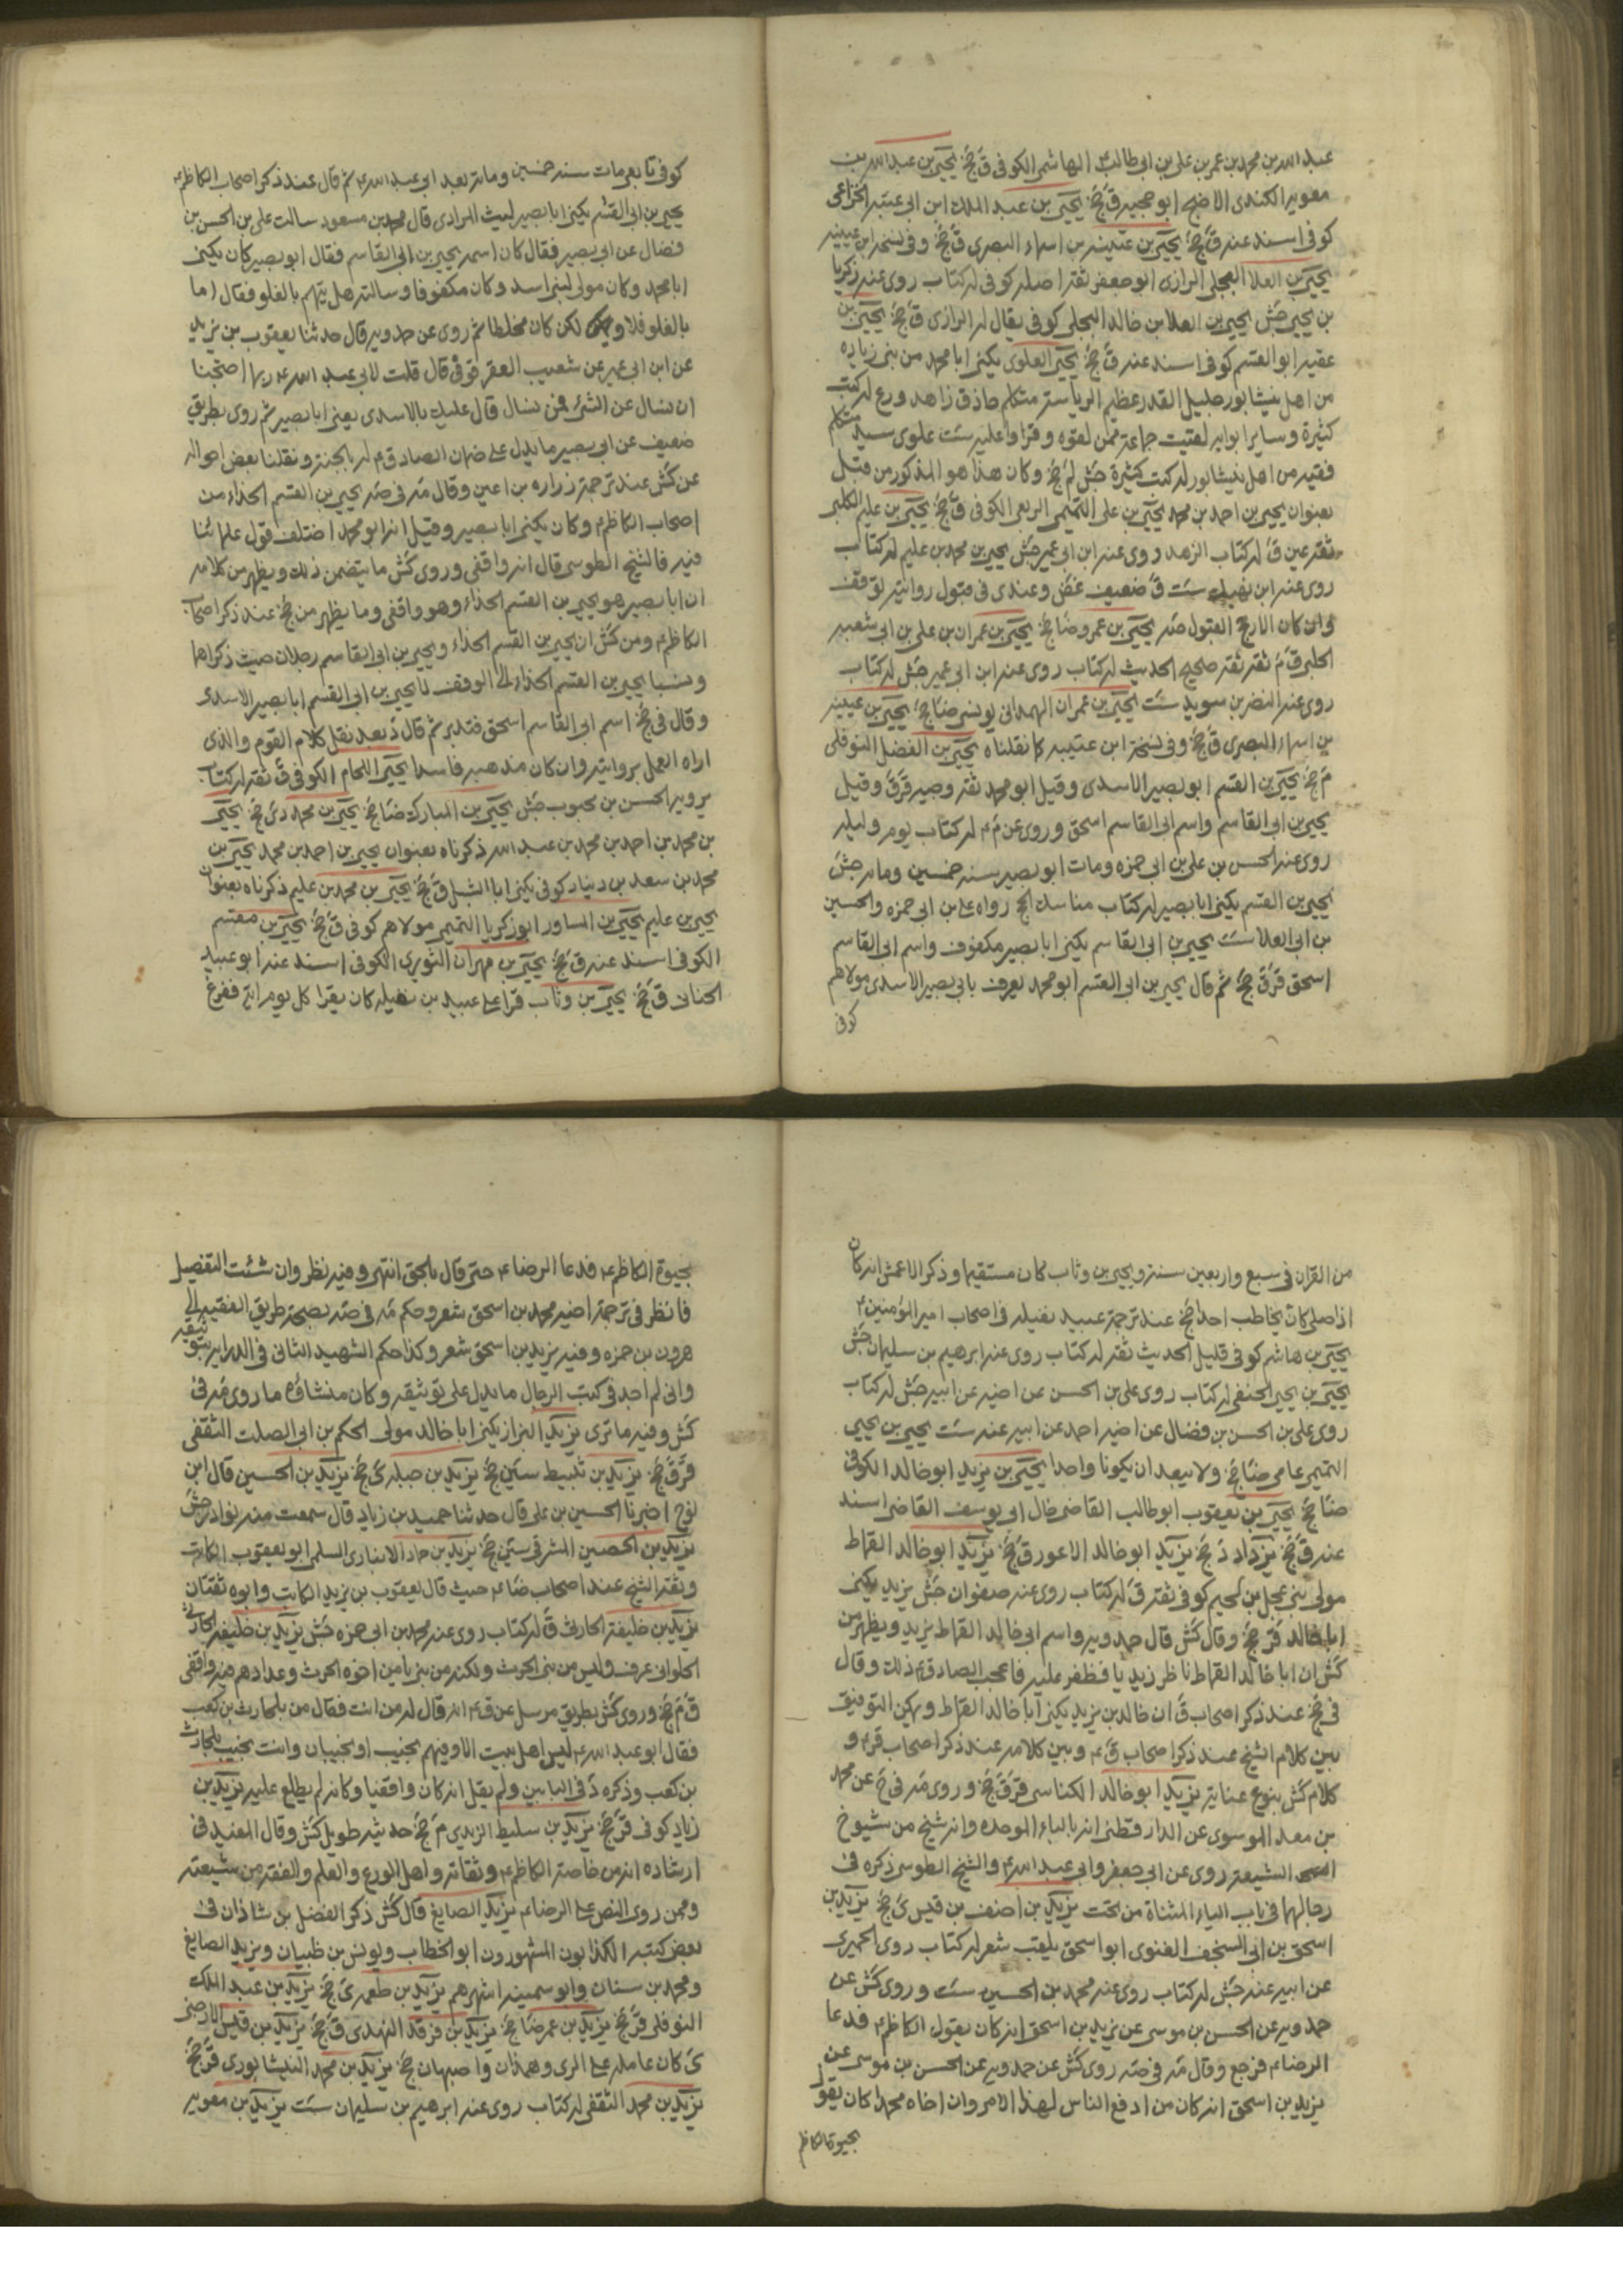 عبد الله بن محمد بن عمر بن علي بن ابي طالب الهاشمي الكوفي ق جخ يحيى بن عبد الله بن
معوية الكندي الاجلح ابو حجية ق جخ يحيى بن عبد الملك ابن ابي عتبة الخزاعي
كوفي اسند عنه ق جخ يحيى بن عتيبة بن اسماء البصري ق جخ وفي نسخة ابن عيينة
يحيى بن العلا البجلي الرازي ابو جعفر ثقة اصله كوفي له كتاب روى عنه زكريا
بن يحيى جش يحيى بن العلا بن خالد البجلي كوفي يقال له الرازي ق جخ يحيى بن
عقبة ابو القسم كوفي اسند عنه ق جخ يحيى العلوي يكنى ابا محمد من بني زباره
من اهل نيشابور جليل القدر عظيم الرياسة متكلم حاذق زاهد ورع له كتب
كثيرة وساير ابوابه لقيت جماعة ممن لقوه وقراوا عليه ست علوي سيد متكلم
فقيه من اهل نيشابور له كتب كثيرة جش لم جخ وكان هذا هو المذكور من قبل
بعنوان يحيى بن احمد بن محمد يحيى بن علي التميمي الربعي الكوفي ق جخ يحيى بن عليم الكلبي
ثقة عين ق له كتاب الزهد روى عنه ابن ابي عمير جش يحيى بن محمد بن عليم له كتاب
روى عنه ابن نهيك ست ق ضعيف غض وعندي في قبول روايته توقف
وان كان الارجح القبول صه يحيى بن عمرو ضا جخ يحيى بن عمران بن علي بن ابي شعبه
الحلبي ق م ثقة ثقة صحيح الحديث له كتاب روى عنه ابن ابي عمير جش له كتاب
روى عنه النضر بن سويد ست يحيى بن عمران الهمداني يونسي ضا جخ يحيى بن عيينة
بن اسماء البصري ق جخ وفي نسخة ابن عتيبه كما نقلناه يحيى بن الفضل النوفلي
م جخ يحيى بن القسم ابو بصير الاسدي وقيل ابو محمد ثقة وجيه قر ق وقيل
يحيى بن ابي القاسم واسم ابي القاسم اسحق وروى عن م له كتاب يوم وليلة
روى عنه الحسن بن علي بن ابي حمزه ومات ابو بصير سنة خمسين ومائة جش
يحيى بن القسم يكنى ابا بصير له كتاب مناسك الحج رواه علي بن ابي حمزه والحسين
بن ابي العلا ست يحيى بن ابي القاسم يكنى ابا بصير مكفوف واسم ابي القاسم
اسحق قر ق جخ ثم قال يحيى بن ابي القسم ابو محمد يعرف بابي بصير الاسدي مولاهم
كوفي
كوفي تابعي مات سنة خمسين ومائة بعد ابي عبد الله ع ثم قال عند ذكر اصحاب الكاظم ع
يحيى بن ابي القسم يكنى ابا بصير ليث المرادي قال محمد بن مسعود سالت علي بن الحسن بن
فضال عن ابي بصير فقال كان اسمه يحيى بن ابي القاسم فقال ابو بصير كان يكنى
ابا محمد وكان مولى لبني اسد وكان مكفوفا وسالته هل يتهم بالغلو فقال اما
بالغلو فلا ولكن كان مخلطا ثم روى عن حمدويه قال حدثنا يعقوب بن يزيد
عن ابن ابي عمير عن شعيب العقرقوفي قال قلت لابي عبد الله ع ربما احتجنا
ان نسال عن الشئ فمن نسال قال عليك بالاسدي يعني ابا بصير ثم روى بطريق
ضعيف عن ابي بصير ما يدل على ضمان الصادق ع له بالجنة ونقلنا بعض احواله
عن كش عند ترجمة زراره بن اعين وقال مه في صه يحيى بن القسم الحذاء من
اصحاب الكاظم ع وكان يكنى ابا بصير وقيل انه ابو محمد اختلف قول علمائنا
فيه فالشيخ الطوسي قال انه واقفي وروى كش ما يتضمن ذلك ويظهر من كلامه
ان ابا بصير هو يحيى بن القسم الحذاء وهو واقفي وما يظهر من جخ عند ذكر اصحاب
الكاظم ع ومن كش ان يحيى بن القسم الحذاء ويحيى بن ابي القاسم رجلان حيث ذكراهما
ونسبا يحيى بن القسم الحذاء الى الوقف لا يحيى بن ابي القسم ابا بصير الاسدي
وقال في جخ اسم ابي القاسم اسحق فتدبر ثم قال د بعد نقل كلام القوم والذي
اراه العمل بروايته وان كان مذهبه فاسدا يحيى اللحام الكوفي ق ثقة له كتاب
يرويه الحسن بن محبوب جش يحيى بن المبارك ضا جخ يحيى بن محمد دي جخ يحيى
بن محمد بن احمد بن محمد بن عبد الله ذكرناه بعنوان يحيى بن احمد بن محمد يحيى بن
محمد بن سعد بن دينار كوفي يكنى ابا الشبل ق جخ يحيى بن محمد بن عليم ذكرناه بعنوان
يحيى بن عليم يحيى بن المساور ابو زكريا التميمي مولاهم كوفي ق جخ يحيى بن مقسم
الكوفي اسند عنه ق جخ يحيى بن مهران الثوري الكوفي اسند عنه ابو عبيد
الحناط ق جخ يحيى بن وثاب قرا على عبيد بن نضيلة كان يقرا كل يوم اية ففرغ
من القران في سبع واربعين سنة ويحيى بن وثاب كان مستقيما وذكر الاعمش انه كان
اذا صلى كان يخاطب احدا جخ عند ترجمة عبيد نضيلة في اصحاب امير المؤمنين ع
يحيى بن هاشم كوفي قليل الحديث ثقة له كتاب روى عنه ابرهيم بن سليمان جش
يحيى بن يحيى الحنفي له كتاب روى علي بن الحسن عن اخيه عن ابيه جش له كتاب
روى علي بن الحسن بن فضال عن اخيه احمد عن ابيه عنه ست يحيى بن يحيى
التميمي عامي ضا جخ ولا يبعد ان يكونا واحدا يحيى بن يزيد ابو خالد الكوفي
ضا جخ يحيى بن يعقوب ابو طالب القاضي خال ابي يوسف القاضي اسند
عنه ق جخ يزداد د جخ يزيد ابو خالد الاعور ق جخ يزيد ابو خالد القماط
مولى بني عجل بن لجيم كوفي ثقة ق له كتاب روى عنه صفوان جش يزيد يكنى
ابا خالد قر جخ وقال كش قال حمدويه واسم ابي خالد القماط يزيد ويظهر من
كش ان ابا خالد القماط ناظر زيديا فظفر عليه فاعجب الصادق ع ذلك وقال
في جخ عند ذكر اصحاب ق ان خالد بن يزيد يكنى ابا خالد القماط ويمكن التوفيق
بين كلام الشيخ عند ذكر اصحاب ق ع وبين كلامه عند ذكر اصحاب قر ع و
كلام كش بنوع عناية يزيد ابو خالد الكناسي قر ق جخ وروى مه في ح عن محمد
بن معد الموسوي عن الدارقطني انه بالباء الموحدة وانه شيخ من شيوخ
الشيعة روى عن ابي جعفر وابي عبد الله ع والشيخ الطوسي ذكره في
رجالهما في باب الياء المثناة من تحت يزيد بن احنف بن قيس ي جخ يزيد بن
اسحق بن ابي السخف الغنوي ابو اسحق يلقب شعر له كتاب روى الحميري
عن ابيه عنه جش له كتاب روى عنه محمد بن الحسين ست وروى كش عن
حمدويه عن الحسن بن موسى عن يزيد بن اسحق انه كان يقول الكاظم ع فدعا
الرضا ع فرجع وقال مه في صه روى كش عن حمدويه عن الحسن بن موسى عن
يزيد بن اسحق انه كان من ادفع الناس لهذا الامر وان اخاه محمدا كان يقول
بحيوة الكاظم
بحيوة الكاظم ع فدعا الرضا ع حتى قال بالحق انتهى وفيه نظر وان شئت التفصيل
فانظر في ترجمة اخيه محمد بن اسحق شعر وحكم مه في صه بصحة طريق الفقيه الى
هرون بن حمزه وفيه يزيد بن اسحق شعر وكذا حكم الشهيد الثاني في الدراية بتوثيقه
واني لم اجد في كتب الرجال ما يدل على توثيقه وكان منشاؤه ما روى مه في
كش وفيه ما ترى يزيد البزاز يكنى ابا خالد مولى الحكم بن ابي الصلت الثقفي
قر ق جخ يزيد بن ثبيط سين جخ يزيد بن جبلة ي جخ يزيد بن الحسين قال ابن
نوح اخبرنا الحسين بن علي قال حدثنا حميد بن زياد قال سمعت منه نوادر جش
يزيد بن الحصين المشرقي سين جخ يزيد بن حماد الانباري السلمي ابو يعقوب الكاتب
وثقه الشيخ عند اصحاب ضا ع حيث قال يعقوب بن يزيد الكاتب وابوه ثقتان
يزيد بن خليفة الحارثي ق له كتاب روى عنه محمد بن ابي حمزه جش يزيد بن خليفة الحارثي
الحلواني عرف وليس من بني الحرث ولكنه من بني يامين اخوه الحرث وعدادهم فيه واقفي
ق م جخ وروى كش بطريق مرسل عن ق ع انه قال له من انت فقال من بلحارث بن كعب
فقال ابو عبد الله ع ليس اهل بيت الا وفيهم نجيب او نجيبان وانت نجيب بلحارث
بن كعب وذكره د في البابين ولم يقل انه كان واقفيا وكانه لم يطلع عليه يزيد بن
زياد كوفي قر جخ يزيد بن سليط الزيدي م جخ حديثه طويل كش وقال المفيد في
ارشاده انه من خاصة الكاظم ع وثقاته واهل الورع والعلم والفقه من شيعته
وممن روى النص على الرضا ع يزيد الصايغ قال كش ذكر الفضل بن شاذان في
بعض كتبه الكذابون المشهورون ابو الخطاب ويونس بن ظبيان ويزيد الصايغ
ومحمد بن سنان وابو سمينه اشهرهم يزيد بن طعمه ي جخ يزيد بن عبد الملك
النوفلي قر جخ يزيد بن عمر ضا جخ يزيد بن فرقد النهدي ق جخ يزيد بن قيس الارحبي
ي كان عامله على الري وهمدان واصبهان جخ يزيد بن محمد النيشابوري قر جخ
يزيد بن محمد الثقفي له كتاب روى عنه ابرهيم بن سليمان ست يزيد بن معوية